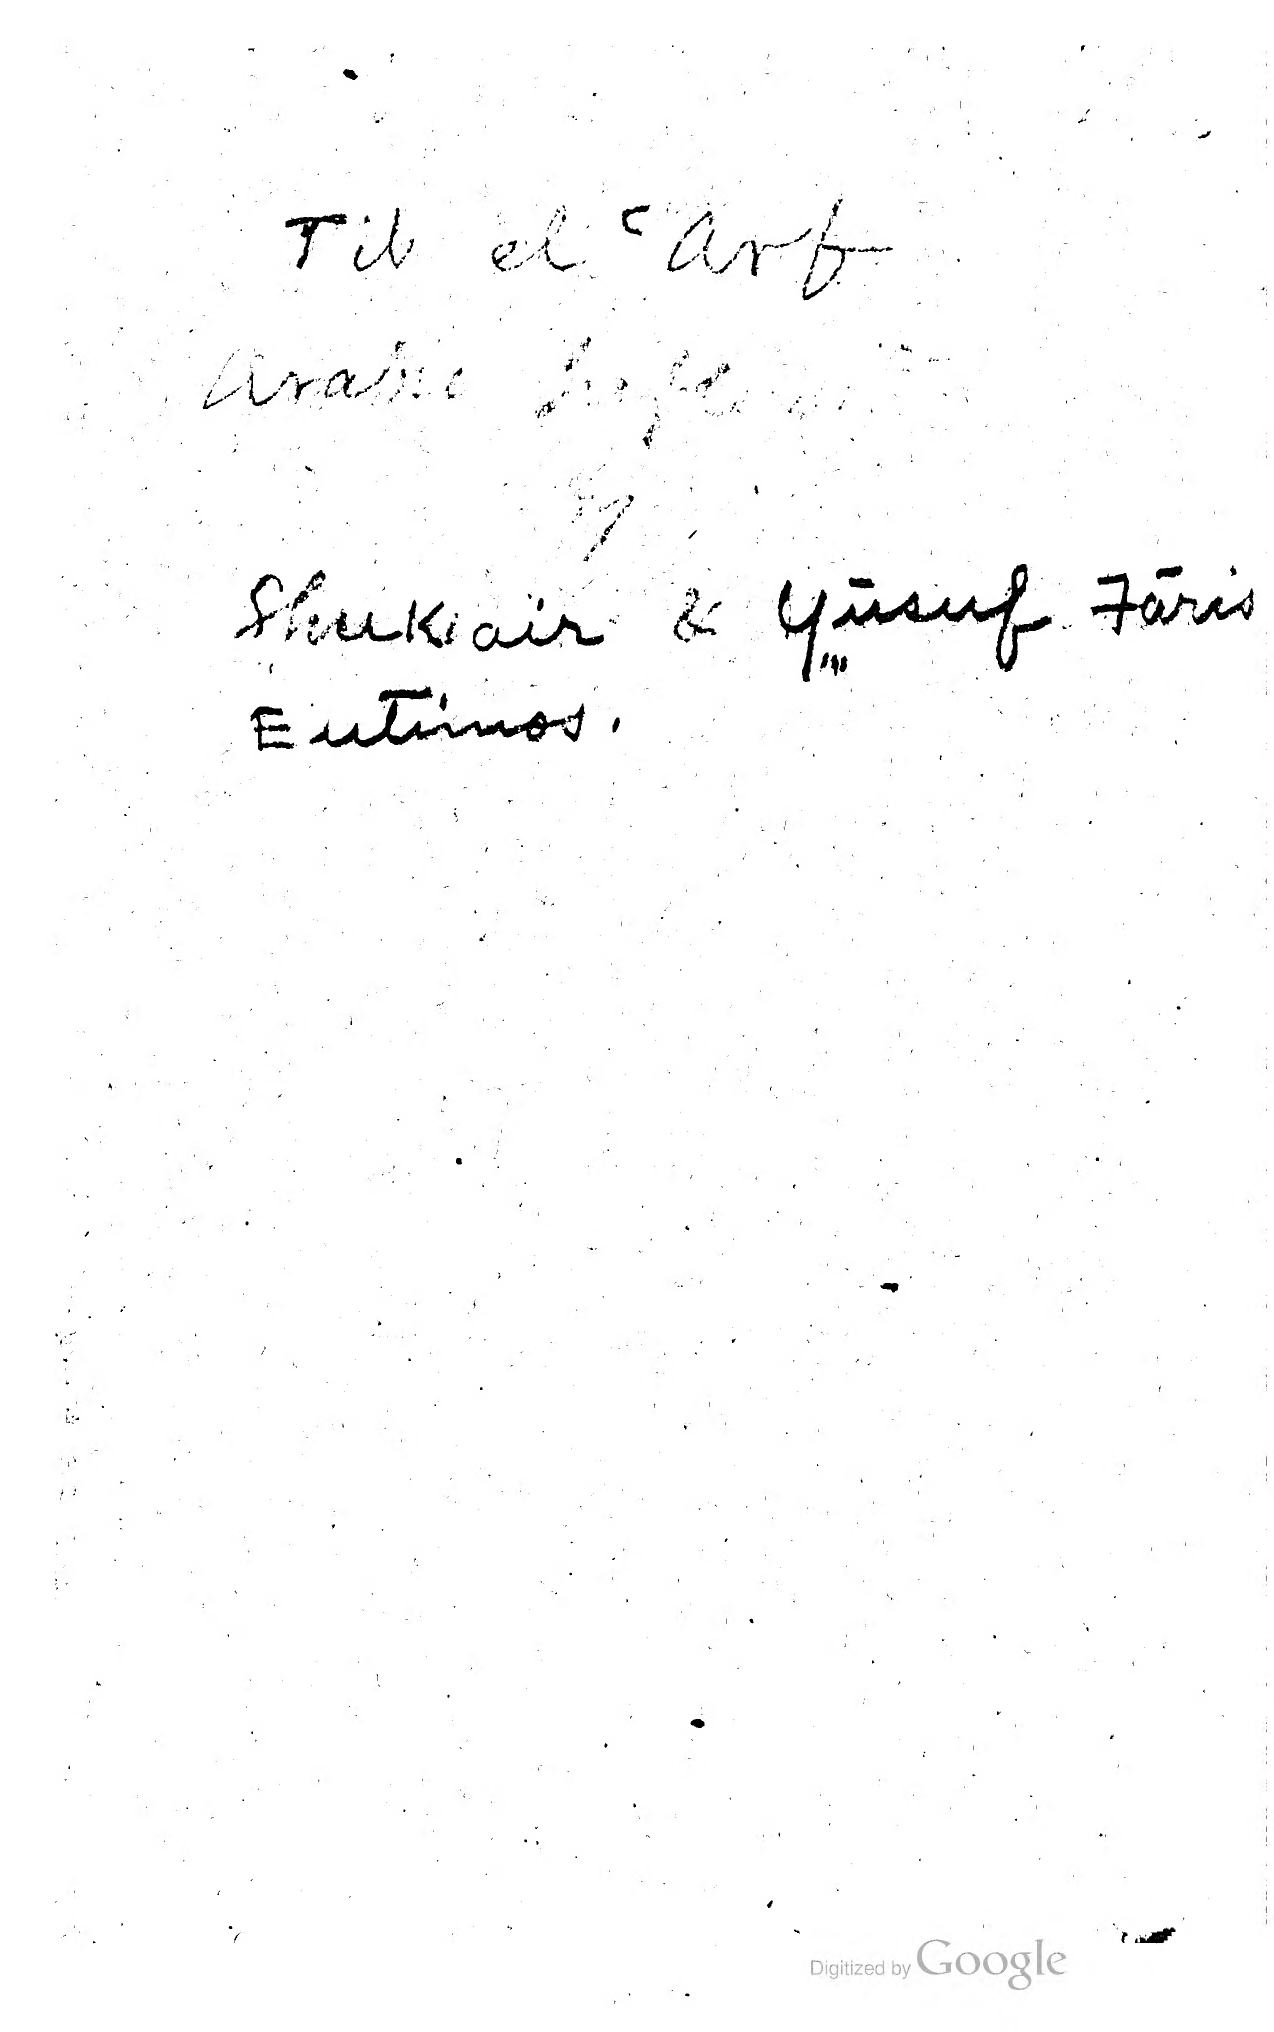 Tib el ʿArf
Arabic
by
Shukiair & Yūsuf Fāris
Eutimos.
Digitized by Google